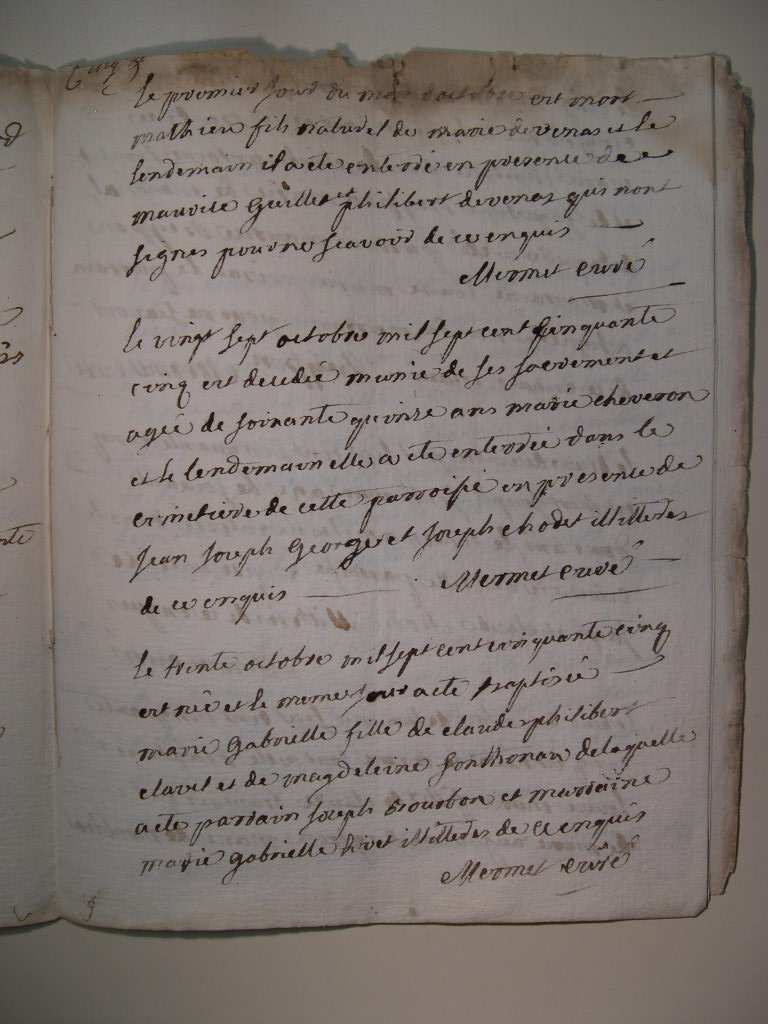 Cinq
le premier jour du mois d'octobre est mort
mathieu fils naturel de marie devenas et le
lendemain il a ete enterré en presence de
maurice Guillet et philibert devenas qui nont
signes pour ne scavoir de ce enquis
Mermet curé
le vingt sept octobre mil sept cent cinquante
cinq est decedée munie de ses sacrement et
agée de soixante quinze ans marie cheveron
et le lendemain elle a ete enterrée dans le
cimetiere de cette parroisse en presence de
Jean Joseph George et Joseph chodet illiteres
de ce enquis Mermet curé
le trente octobre mil sept cent cinquante cinq
est née et le meme jour a ete baptisée
marie Gabrielle fille de claude philibert
clavel et de magdeleine Sonthonax de laquelle
a ete parrain Joseph Bourbon et marraine
marie gabrielle livet illiteres de ce enquis
Mermet curé